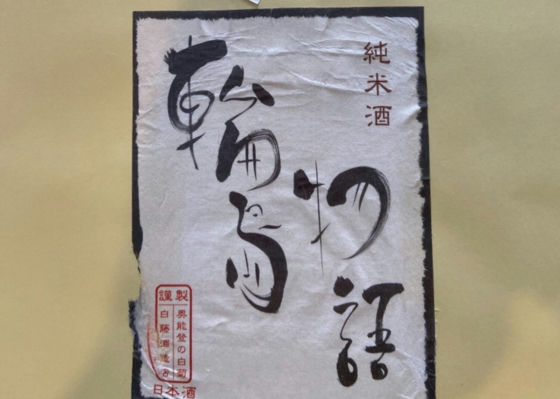 純米酒
輪島
物語
謹製
奥能登の白菊
白藤酒造店
日本酒